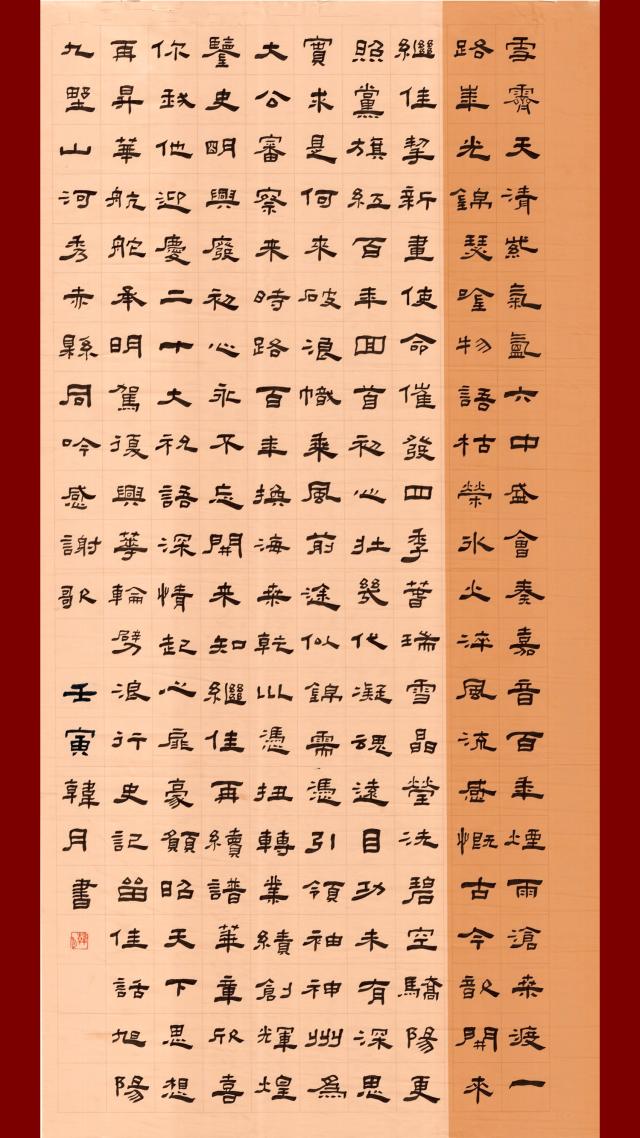 雪霽天清紫氣氳六中盛會奏嘉音百年煙雨滄桑渡一
路年光錦瑟唫物語枯榮冰火淬風流感慨古今開來
繼佳挈新畫使命催發四季菁瑞雪晶瑩洗碧空驕陽更
照黨旗紅百年回首初心壯幾代凝魂遠目功未有深思
實求是何來破浪幟乘風前途似錦需憑引領袖神州為
大公審察來時路百年換海桑乾以憑扭轉業績創輝煌
鑒史明興廢初心永不忘開來知繼佳再續譜華章欣喜
你我他迎慶二十大祝語深情起心扉豪顏昭天下思想
再昇華航舵承明駕復興華輪劈浪行史記留佳話旭陽
九野山河秀赤縣同吟感謝歌 壬寅韓月書